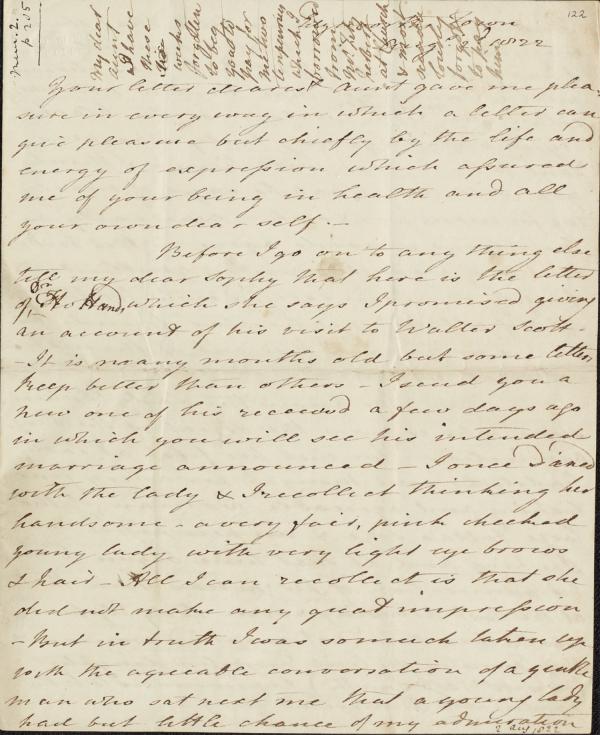 122
My dear
aunt
I have
nine
weeks
forgotten
to beg
you to
pay for
me two
which I
borrowed
from
at church
& most
forgot
to pay
him
1822
Your letter dearest Aunt gave me plea-
sure in every way in which a letter can
give pleasure but chiefly by the life and
energy of expression which assured
me of your being in health and all
your own dear self. –
Before I go on to any thing else
tell my dear Sophy that here is the letter
of which she says I promised giving
an account of his visit to Walter Scott –
– It is many months old but some letters
keep better than others – I send you a
new one of his received a few days ago
in which you will see his intended
marriage announced – I once dined
with the lady & I recollect thinking her
handsome – a very fair, pink cheeked
young lady with very light eye brows
& hair – All I can recollect is that she
did not make any great impression
– But in truth I was so much taken up
with the agreeable conversation of a gentle
man who sat next me that a young lady
had but little chance of my admiration
2 Aug 1822